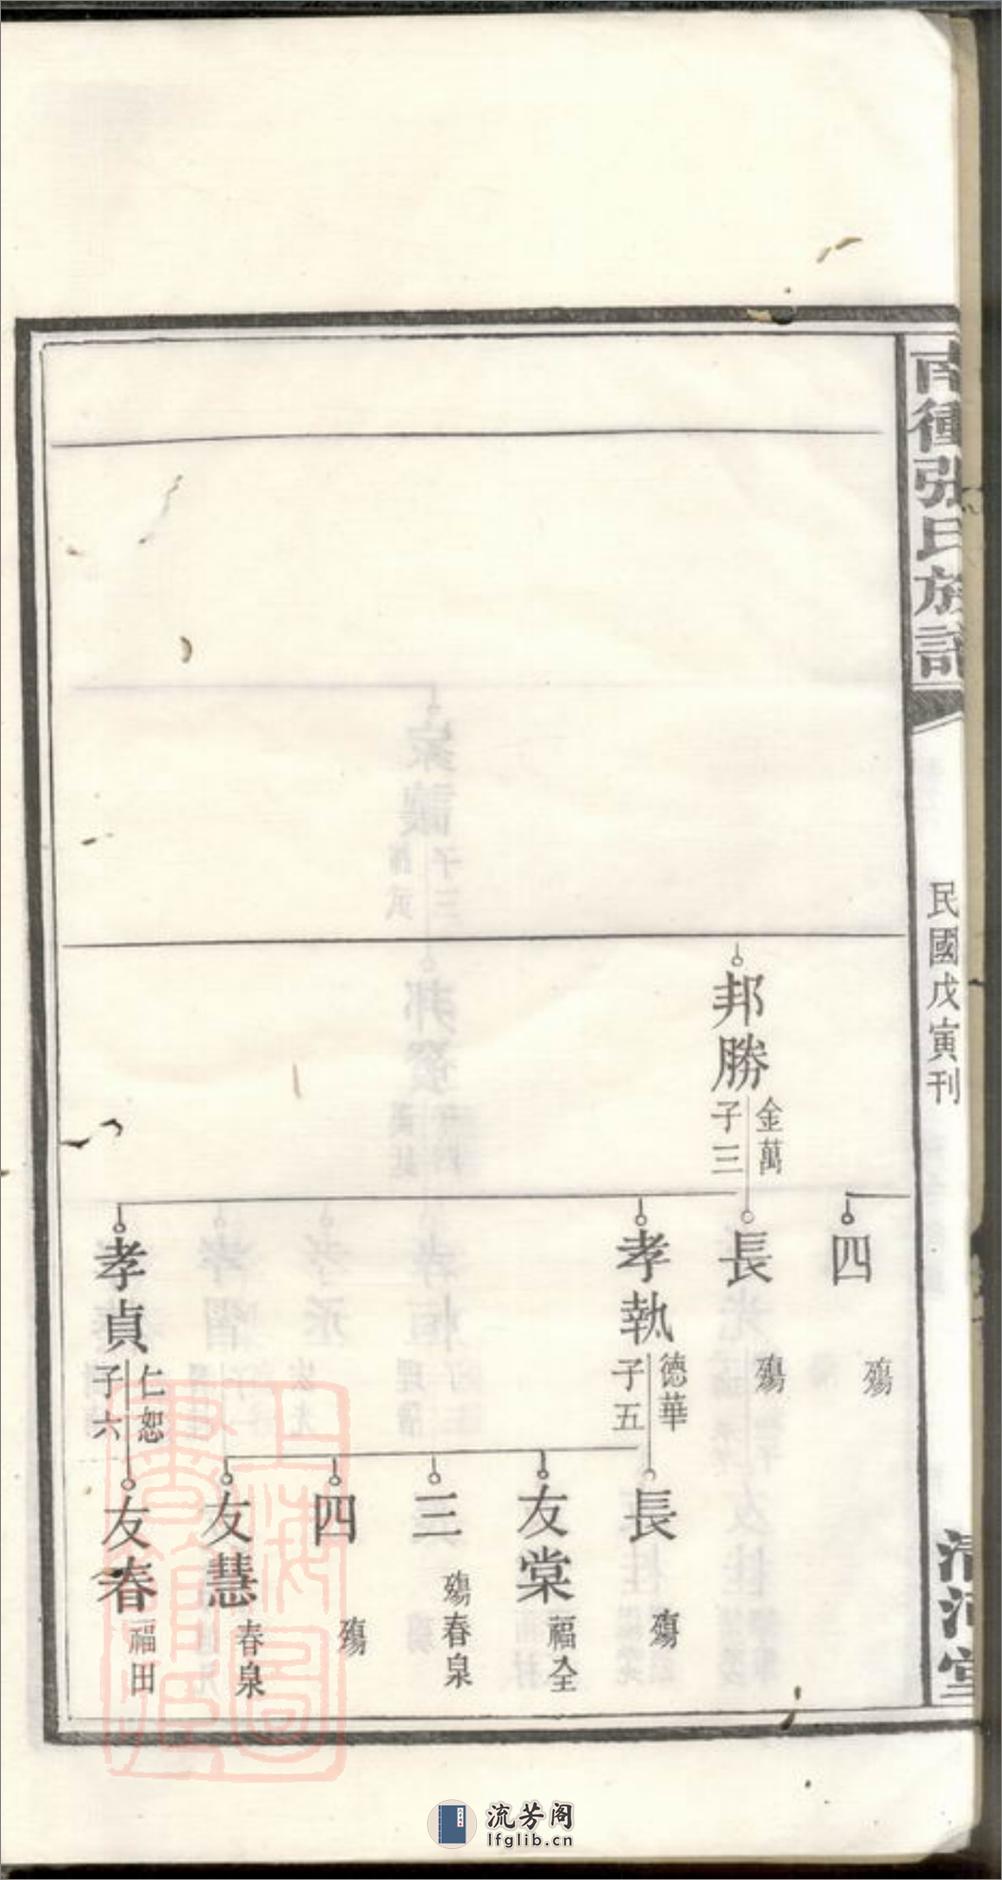 南衝張氏族譜
民國戊寅刊
清河堂
四
殤
邦勝
金萬
子三
長
殤
孝執
德華
子五
孝貞
仁恕
子六
長
殤
友棠
福全
三
殤
春泉
四
殤
友慧
春泉
友春
福田
上海圖書館藏
流芳阁
lfglib.cn